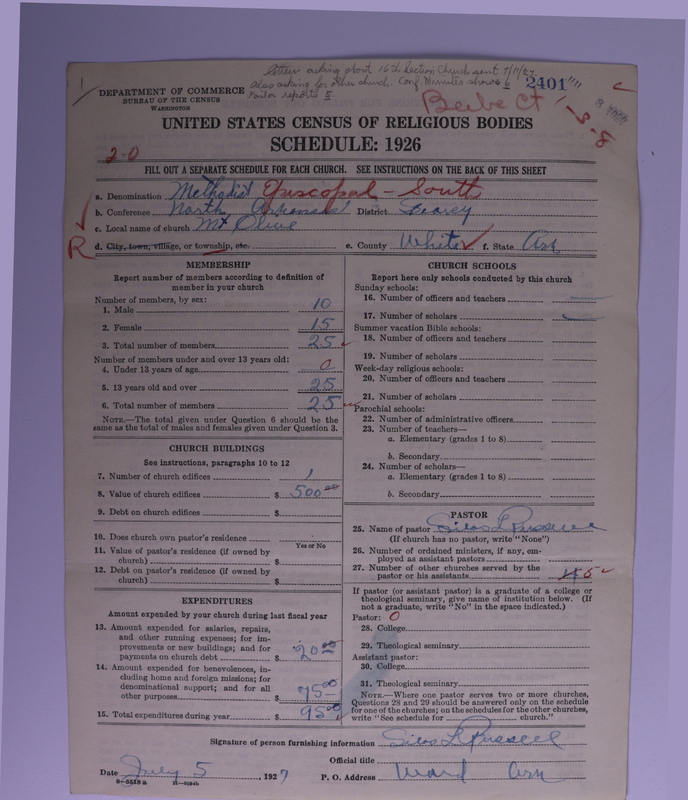 Letter asking about 16th Section Church sent 9/11/27
Also asking for other church. Conf Minutes shows 6
Pastor reports 5
2401
DEPARTMENT OF COMMERCE
BUREAU OF THE CENSUS
WASHINGTON
Beebe Ct
3-8
UNITED STATES CENSUS OF RELIGIOUS BODIES
SCHEDULE: 1926
2-0
FILL OUT A SEPARATE SCHEDULE FOR EACH CHURCH. SEE INSTRUCTIONS ON THE BACK OF THIS SHEET
a. Denomination Methodist Episcopal - South
b. Conference North Arkansas District Searcy
c. Local name of church Mt Olive
R d. City, town, village, or township, etc. e. County White f. State Ark
MEMBERSHIP
Report number of members according to definition of
member in your church
Number of members, by sex:
1. Male 10
2. Female 15
3. Total number of members 25
Number of members under and over 13 years old:
4. Under 13 years of age 0
5. 13 years old and over 25
6. Total number of members 25
NOTE.—The total given under Question 6 should be the
same as the total of males and females given under Question 3.
CHURCH BUILDINGS
See instructions, paragraphs 10 to 12
7. Number of church edifices 1
8. Value of church edifices $ 500 00
9. Debt on church edifices $
10. Does church own pastor's residence
Yes or No
11. Value of pastor's residence (if owned by
church) $
12. Debt on pastor's residence (if owned by
church) $
EXPENDITURES
Amount expended by church during last fiscal year
13. Amount expended for salaries, repairs,
and other running expenses; for im-
provements or new buildings; and for
payments on church debt $ 20 00
14. Amount expended for benevolences, in-
cluding home and foreign missions; for
denominational support; and for all
other purposes $ 75 00
15. Total expenditures during year $ 95 00
CHURCH SCHOOLS
Report here only schools conducted by this church
Sunday schools:
16. Number of officers and teachers
17. Number of scholars
Summer vacation Bible schools:
18. Number of officers and teachers
19. Number of scholars
Week-day religious schools:
20. Number of officers and teachers
21. Number of scholars
Parochial schools:
22. Number of administrative officers
23. Number of teachers—
a. Elementary (grades 1 to 8)
b. Secondary
24. Number of scholars—
a. Elementary (grades 1 to 8)
b. Secondary
PASTOR
25. Name of pastor Silas L Russell
(If church has no pastor, write "None")
26. Number of ordained ministers, if any, em-
ployed as assistant pastors
27. Number of other churches served by the
pastor or his assistants 5
If pastor (or assistant pastor) is a graduate of a college or
theological seminary, give name of institution below. (If
not a graduate, write "No" in the space indicated.)
Pastor: 0
28. College
29. Theological seminary
Assistant pastor:
30. College
31. Theological seminary
NOTE.—Where one pastor serves two or more churches,
Questions 28 and 29 should be answered only on the schedule
for one of the churches; on the schedules for the other churches,
write "See schedule for church."
Signature of person furnishing information Silas L Russell
Official title
Date July 5, 1927 P. O. Address Ward Ark
8-5518 a